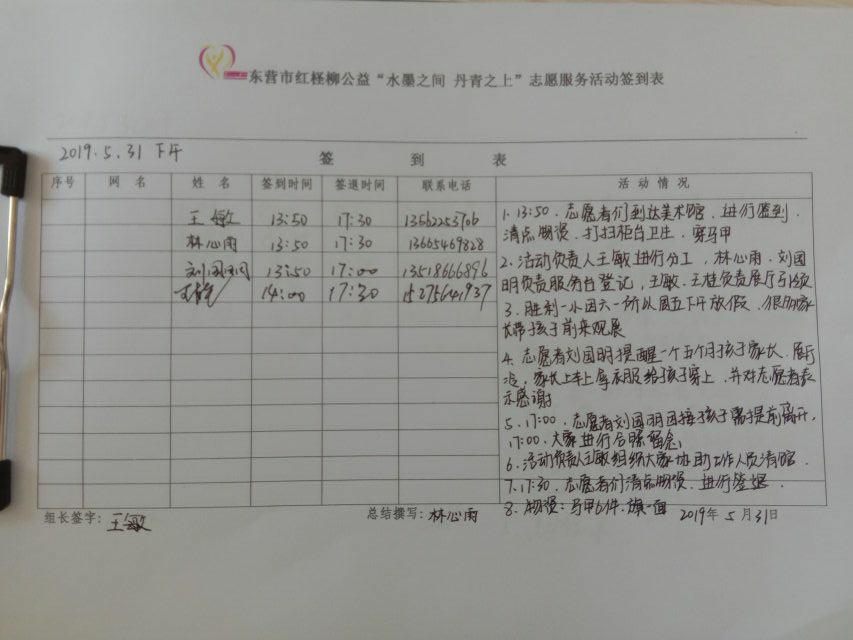 东营市红柽柳公益“水墨之间 丹青之上”志愿服务活动签到表
2019.5.31 下午
签 到 表
序号 网名 姓名 签到时间 签退时间 联系电话 活动情况
王敏 13:50 17:30 13562253706
林心雨 13:50 17:30 13665469828
刘国明 13:50 17:00 13518666896
王雄 14:00 17:30 15275641937
1.13:50.志愿者们到达美术馆.进行签到.
清点物资.打扫柜台卫生.穿马甲
2.活动负责人王敏进行分工,林心雨.刘国
明负责服务台登记,王敏.王雄负责展厅引领
3.胜利一小因六一节从周五下午放假.很多家
长带孩子前来观展
4.志愿者刘国明提醒一个五个月孩子家长.展厅
冷,家长上车上拿衣服给孩子穿上,并对志愿者表
示感谢
5.17:00.志愿者刘国明因接孩子需提前离开,
17:00.大家进行合照留念;
6.活动负责人王敏组织大家协助工作人员清馆.
7.17:30.志愿者们清点物资.进行签退.
8.物资:马甲6件.旗一面
组长签字:王敏 总结撰写:林心雨 2019年5月31日